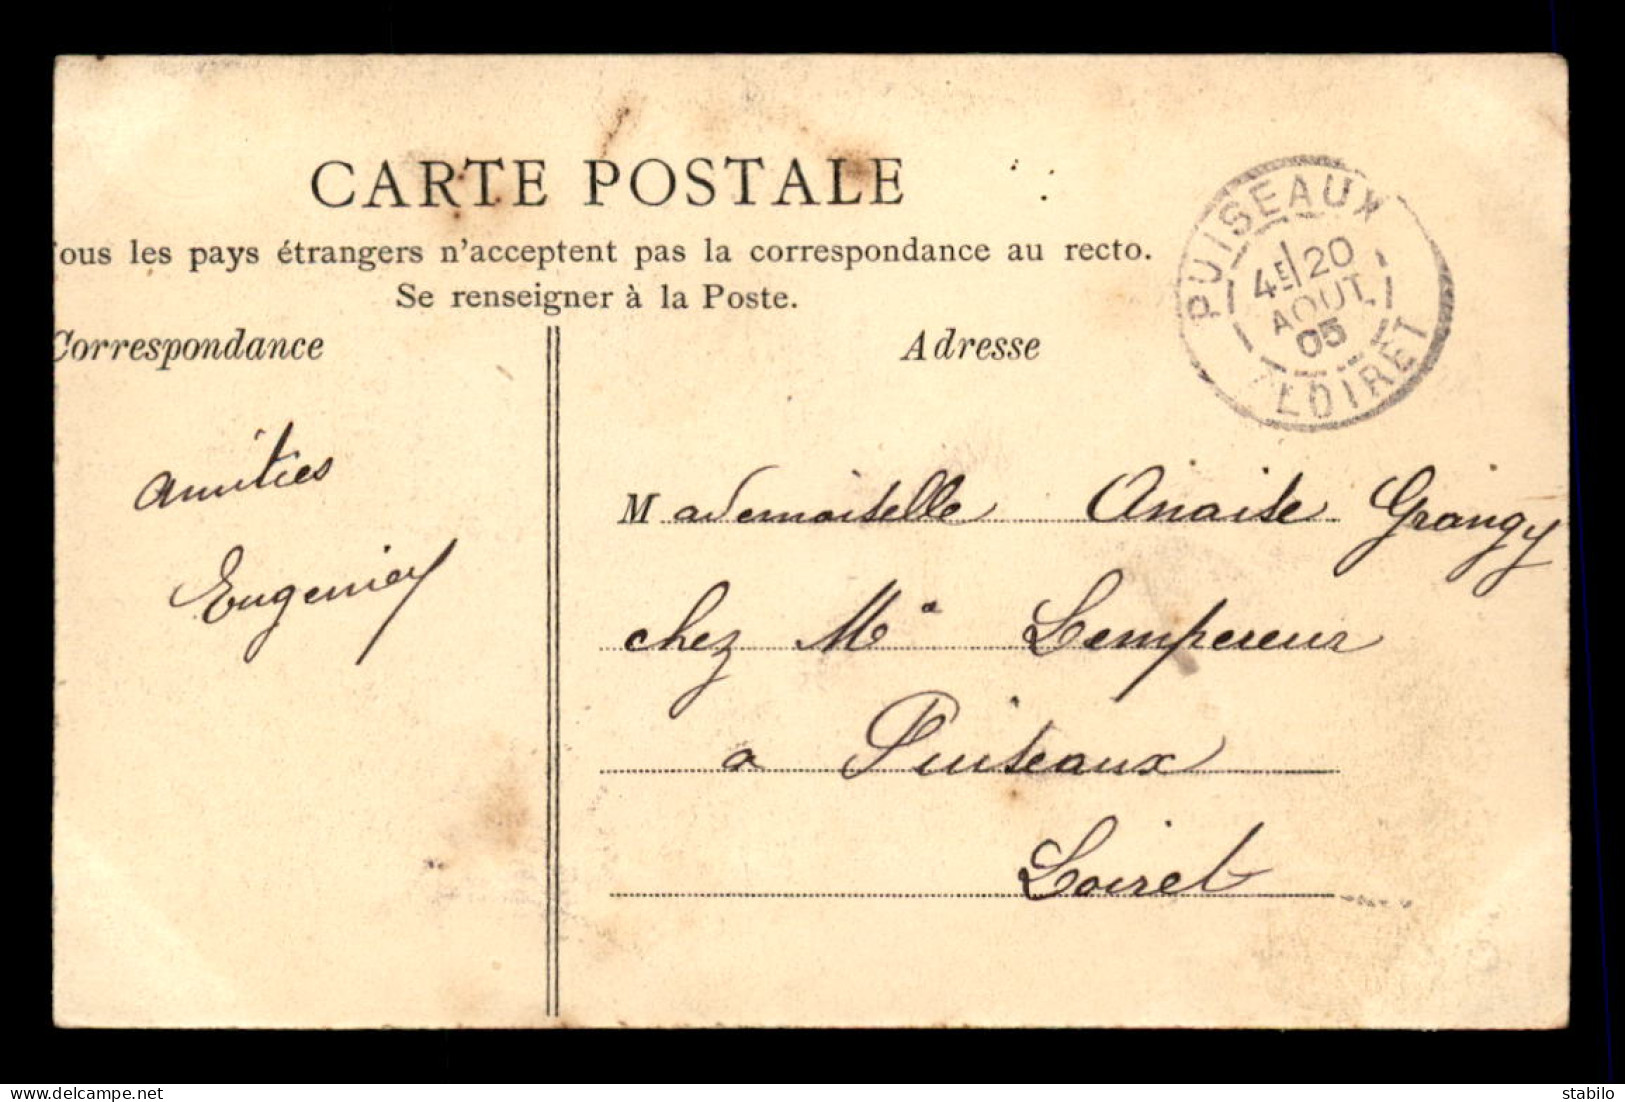 CARTE POSTALE
Tous les pays étrangers n'acceptent pas la correspondance au recto.
Se renseigner à la Poste.
Correspondance
Adresse
PUISEAUX
4E 20
AOUT
05
LOIRET
amitiés
Eugenie
Mademoiselle Anaise Grangy
chez Mr Lempereur
a Puiseaux
Loiret
https://www.delcampe.net
stabilo